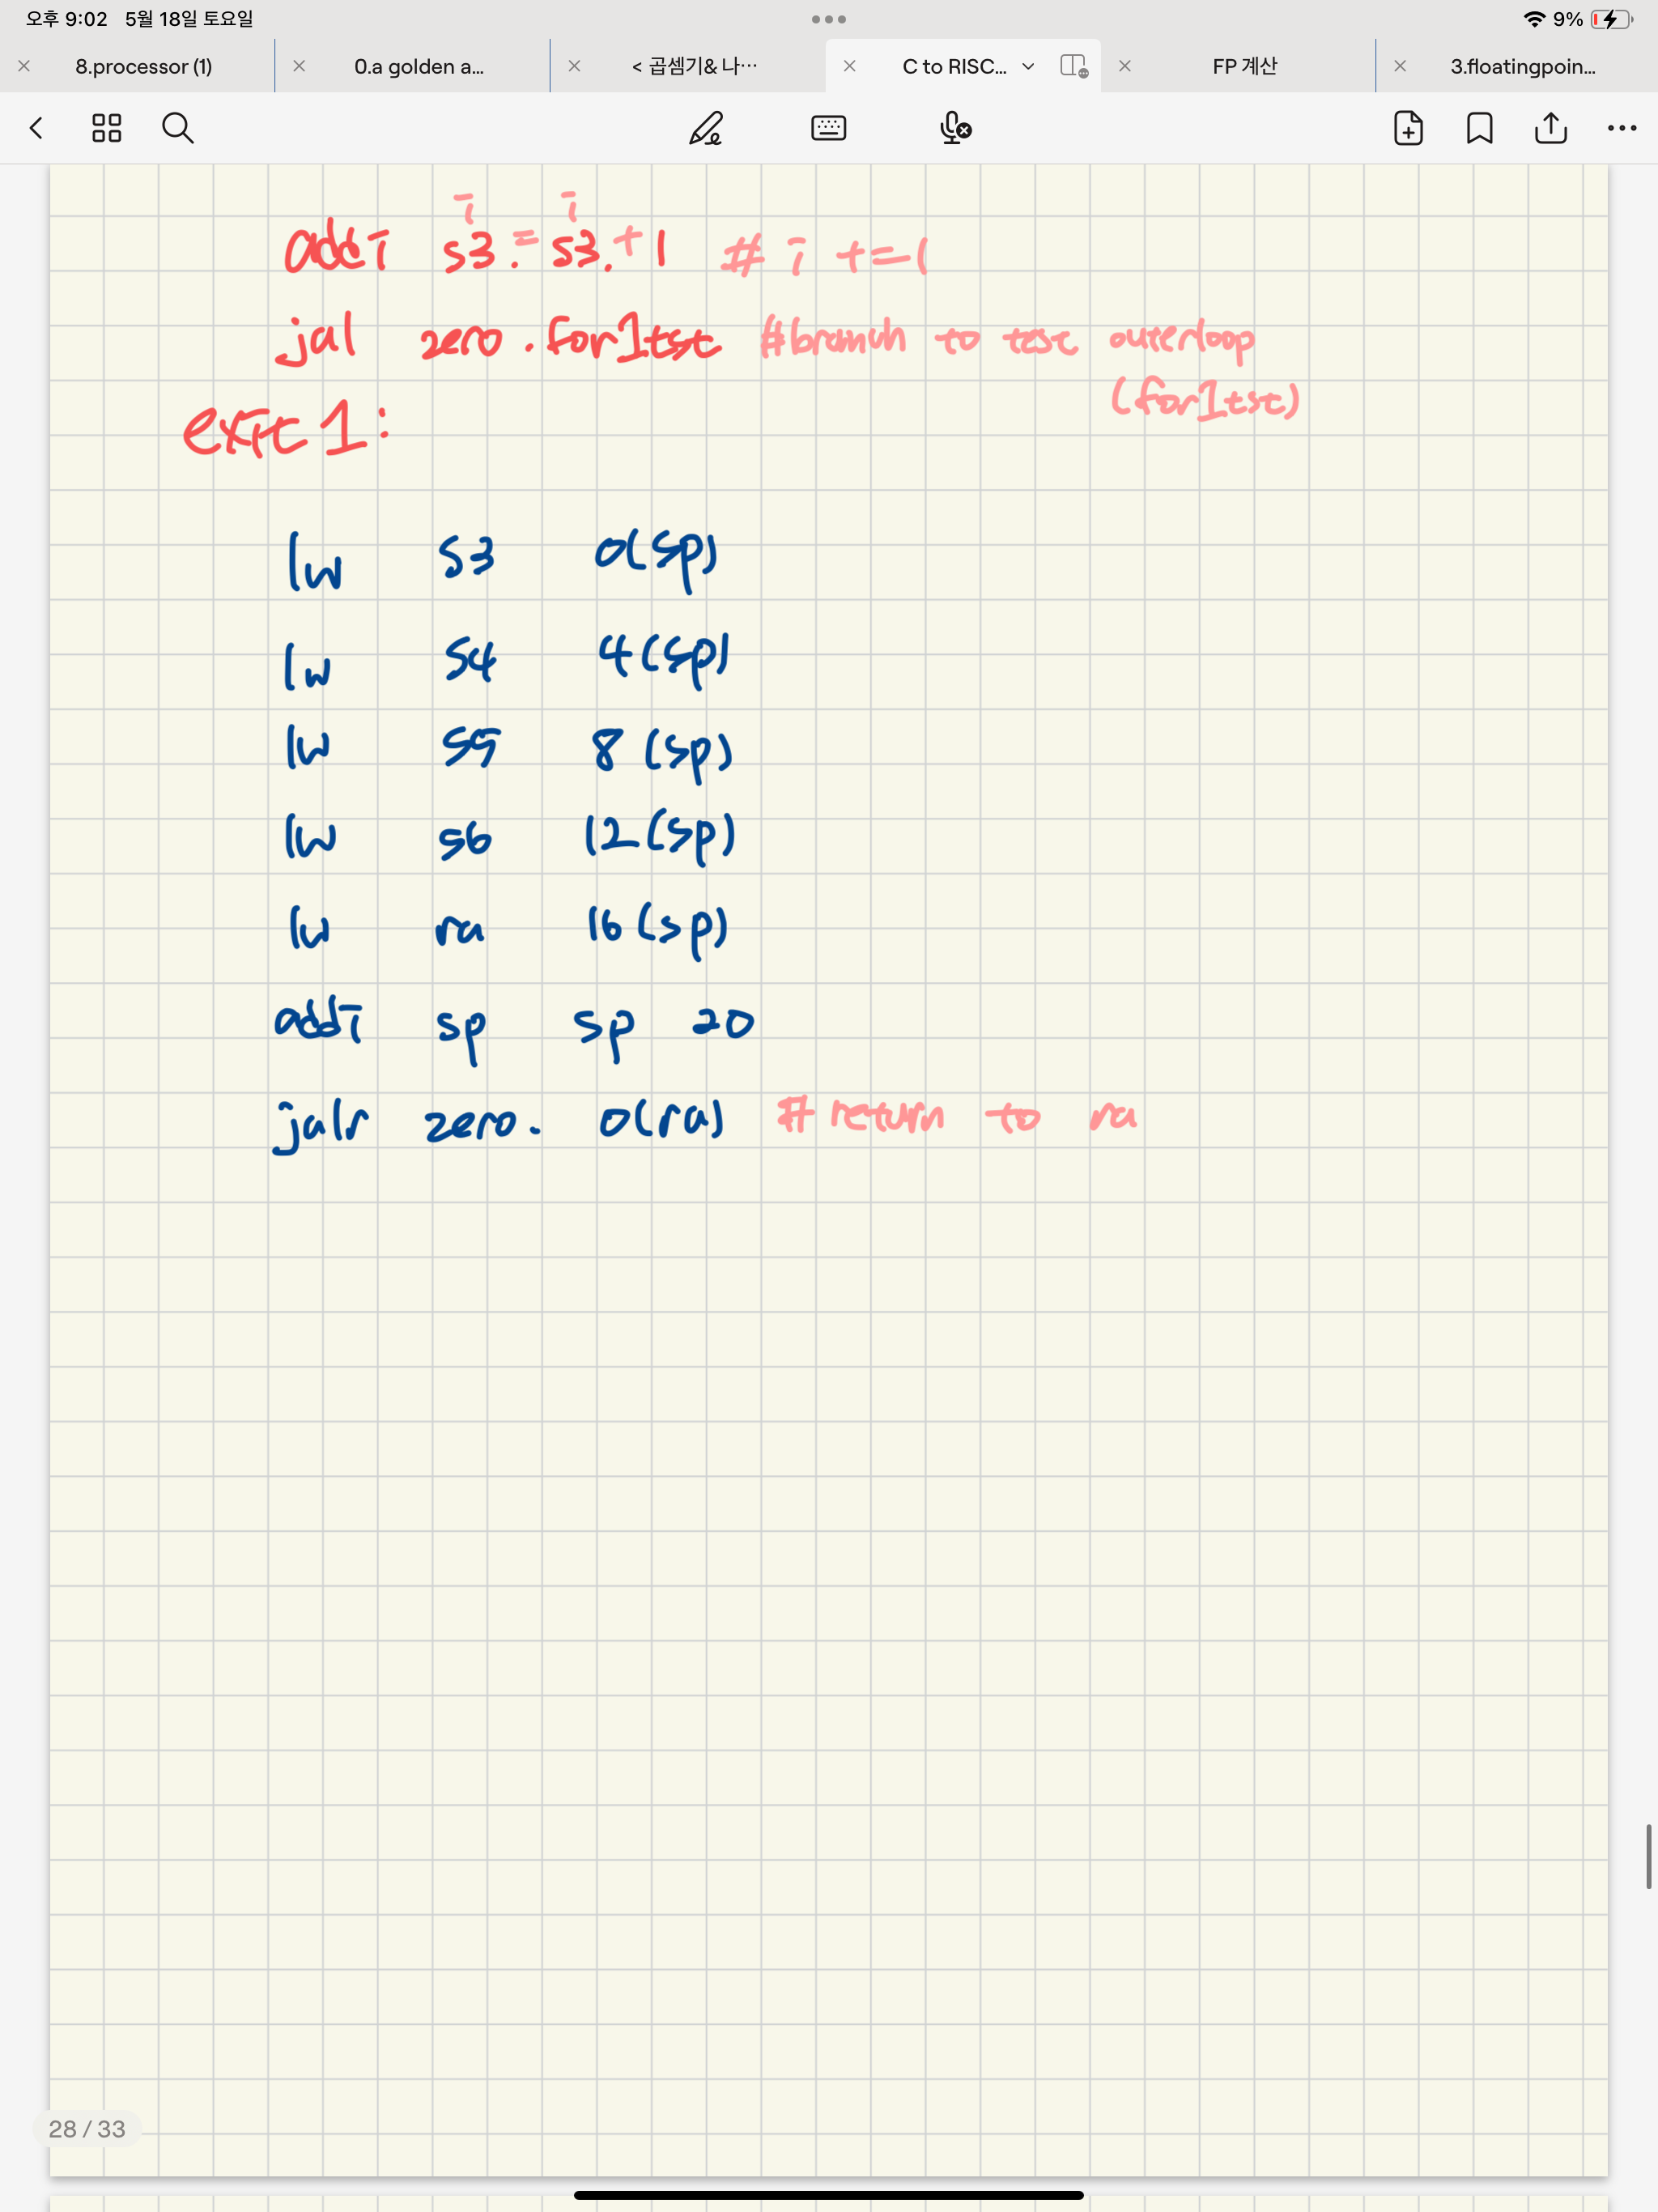 오후 9:02 5월 18일 토요일 9%
8.processor (1) 0.a golden a... < 곱셈기& 나… C to RISC... FP 계산 3.floatingpoin...
i i
addi s3. = s3. + 1 # i +=1
jal zero. for1tst #branch to test outerloop
(for1tst)
exit1:
lw s3 0(sp)
lw s4 4(sp)
lw s5 8(sp)
lw s6 12(sp)
lw ra 16(sp)
addi sp sp 20
jalr zero. 0(ra) # return to ra
28 / 33